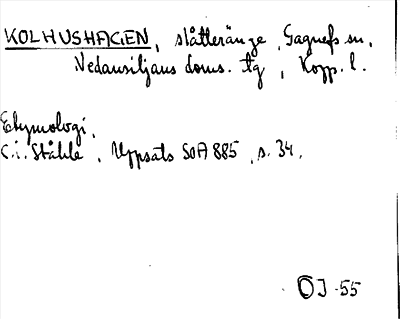 KOLHUSHAGEN, slåtteränge, Gagnefs sn,
Nedansiljans doms. tg, Kopp. l.
Etymologi,
C.i. Ståhle, Uppsats SOA 885, s. 34.
OJ -55